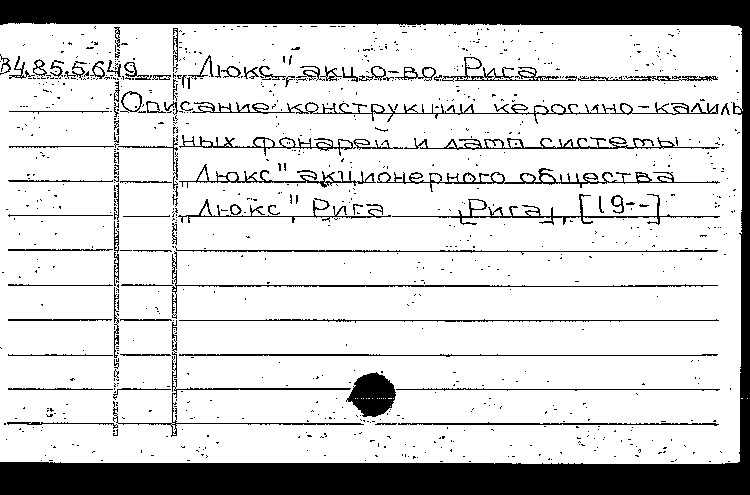 34.85.5.649 „Люкс" акц. о-во. Рига
Описание конструкции керосино-калиль
ных фонарей и ламп системы
„Люкс" акционерного общества
„Люкс", Рига [Рига], [19--]